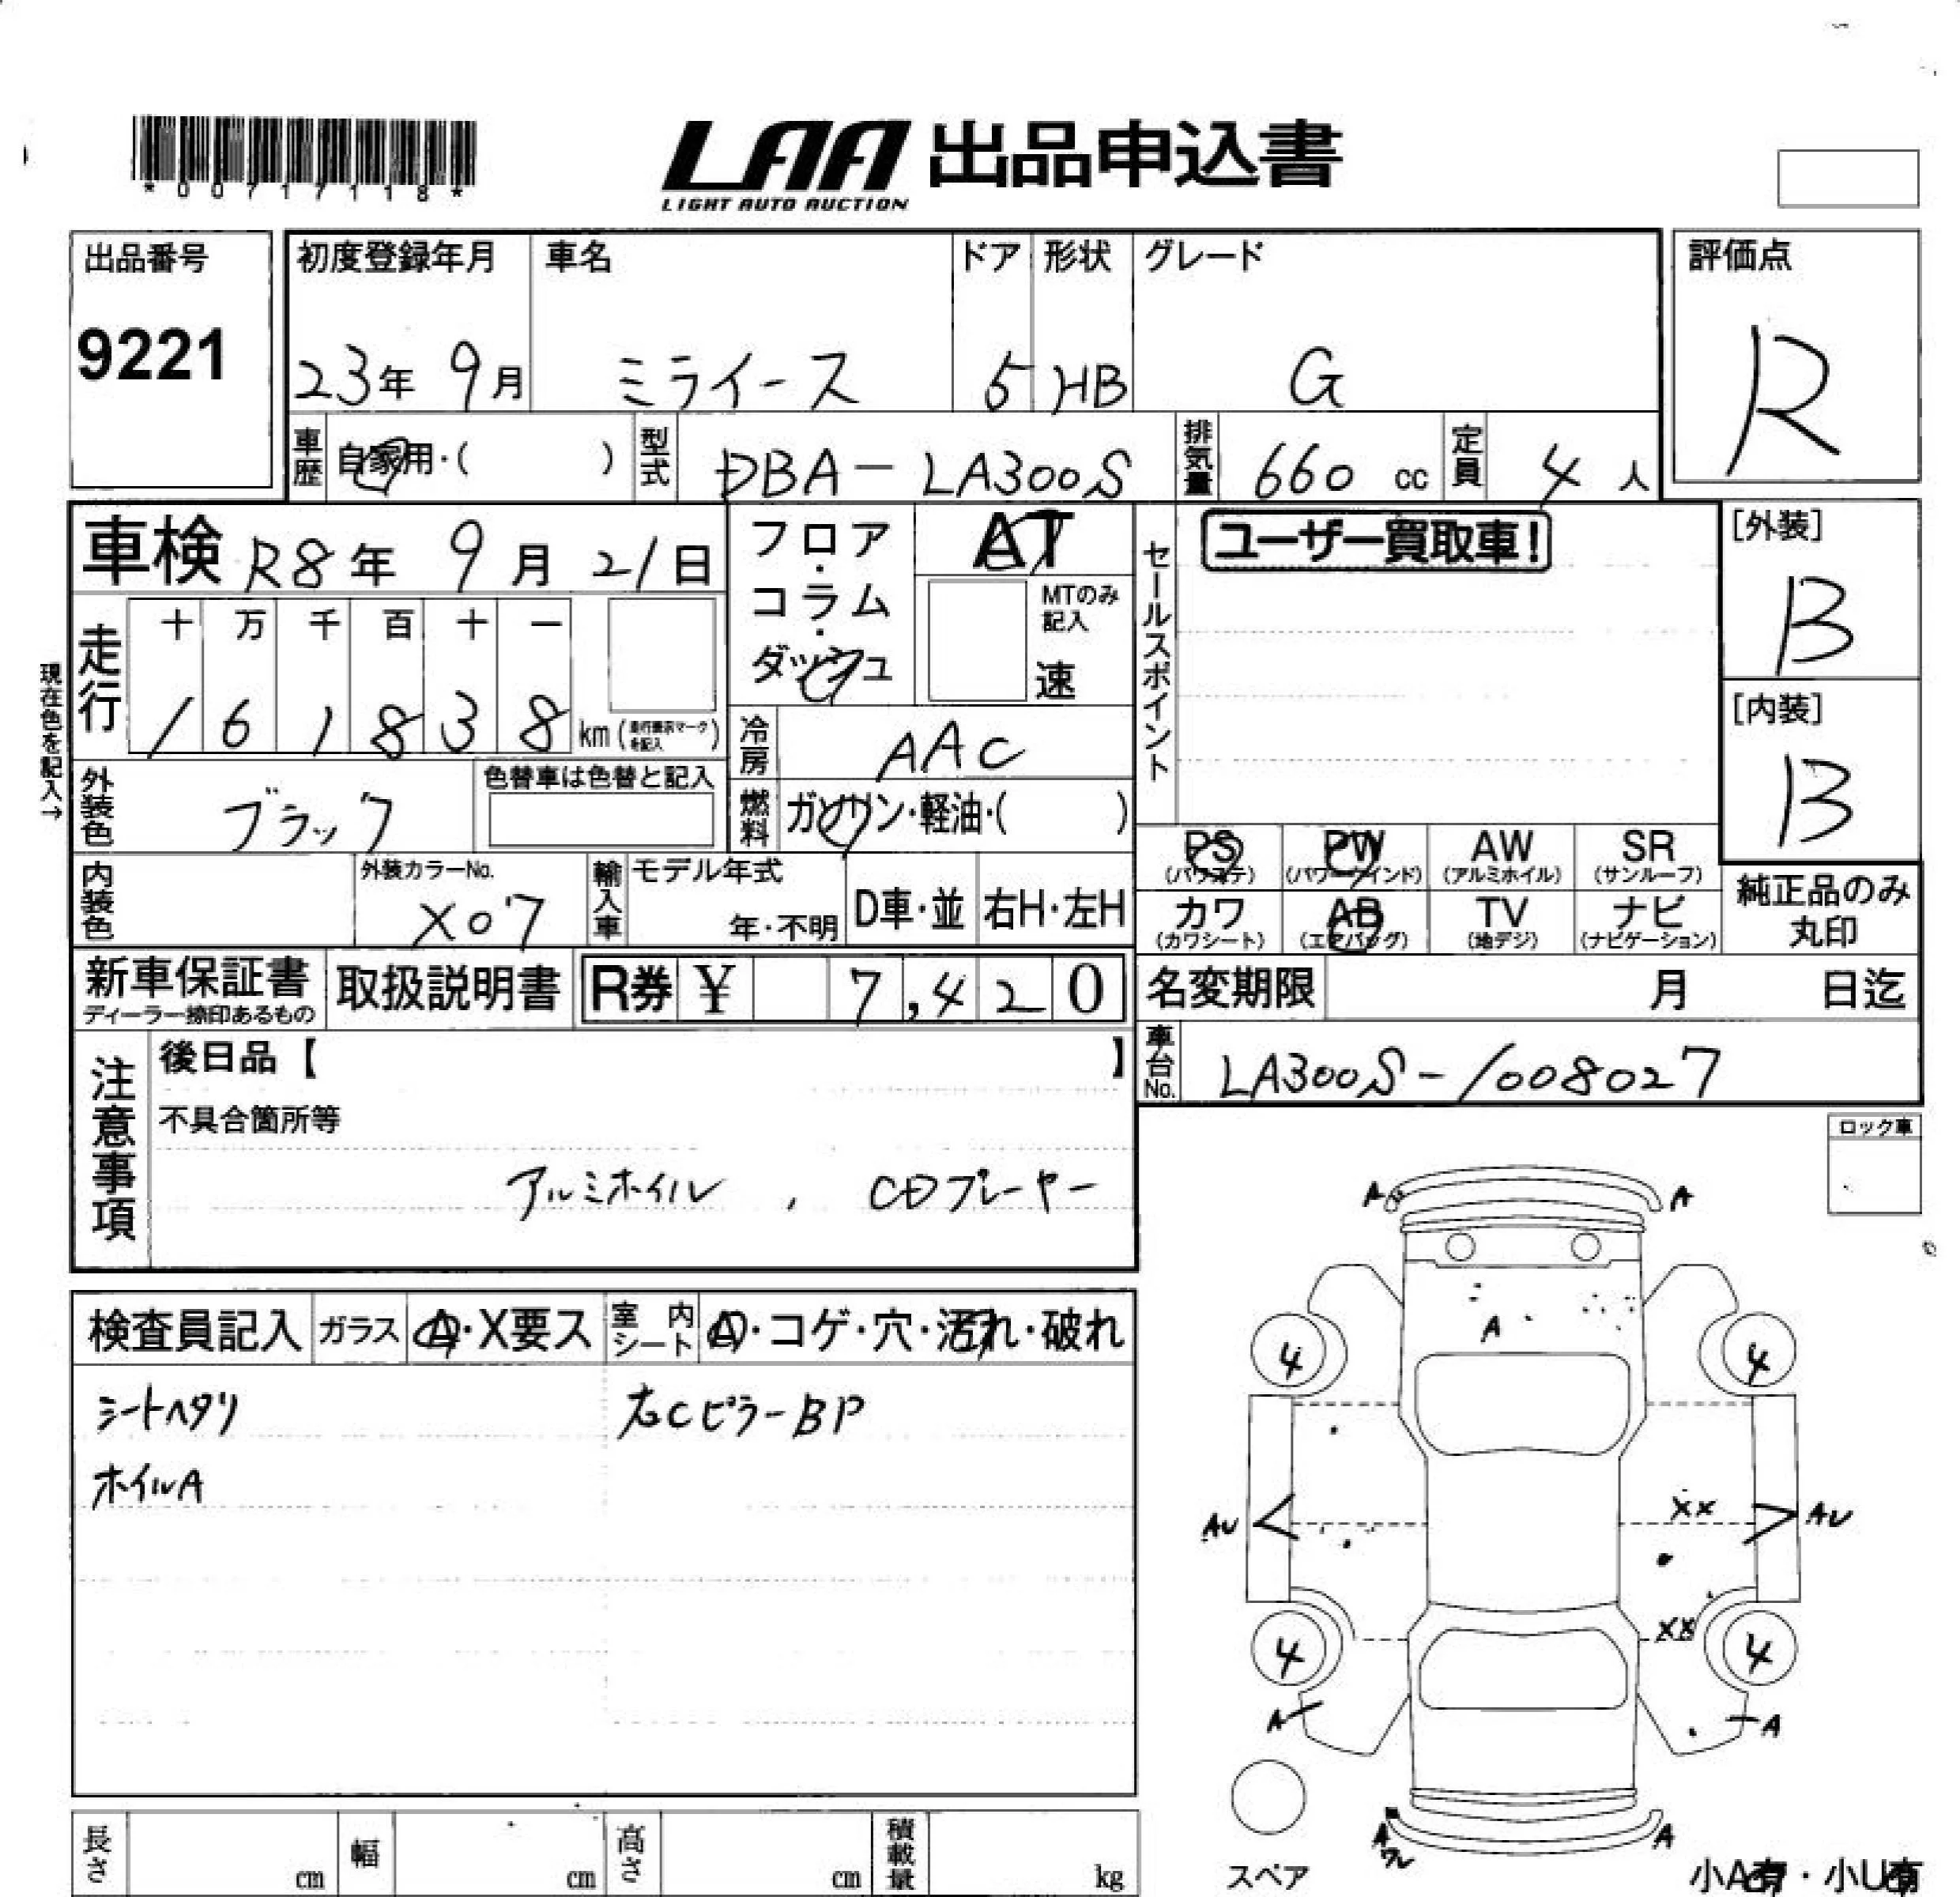 *00717118*
LAA 出品申込書
LIGHT AUTO AUCTION
出品番号
9221
初度登録年月
23年 9月
車名
ミライース
ドア
5
形状
HB
グレード
G
評価点
R
車歴 自家用・( )
型式 DBA-LA300S
排気量 660 cc
定員 4 人
車検 R8年 9月 21日
現在色を記入→
走行
十 万 千 百 十 一
1 6 1 8 3 8 km (走行表示マークを記入)
フロア・コラム・ダッシュ
AT
MTのみ記入
速
冷房 AAC
燃料 ガソリン・軽油・( )
外装色 ブラック
色替車は色替と記入
内装色
外装カラーNo.
X07
輸入車
モデル年式
年・不明
D車・並
右H・左H
セールスポイント
ユーザー買取車!
[外装]
B
[内装]
B
PS (パワステ)
PW (パワーウインド)
AW (アルミホイル)
SR (サンルーフ)
カワ (カワシート)
AB (エアバッグ)
TV (地デジ)
ナビ (ナビゲーション)
純正品のみ
丸印
新車保証書
ディーラー捺印あるもの
取扱説明書
R券 ¥ 7,420
名変期限 月 日迄
車台No. LA300S-1008027
注意事項
後日品【 】
不具合箇所等
アルミホイル , CDプレーヤー
ロック車
検査員記入
ガラス A・X要ス
室内シート A・コゲ・穴・汚れ・破れ
シートヘタリ
右CピラーBP
ホイルA
A A
A
4 4
XX
AU AU
XX
4 4
A A
A A
ワレ
スペア
小A有・小U有
長さ cm
幅 cm
高さ cm
積載量 kg